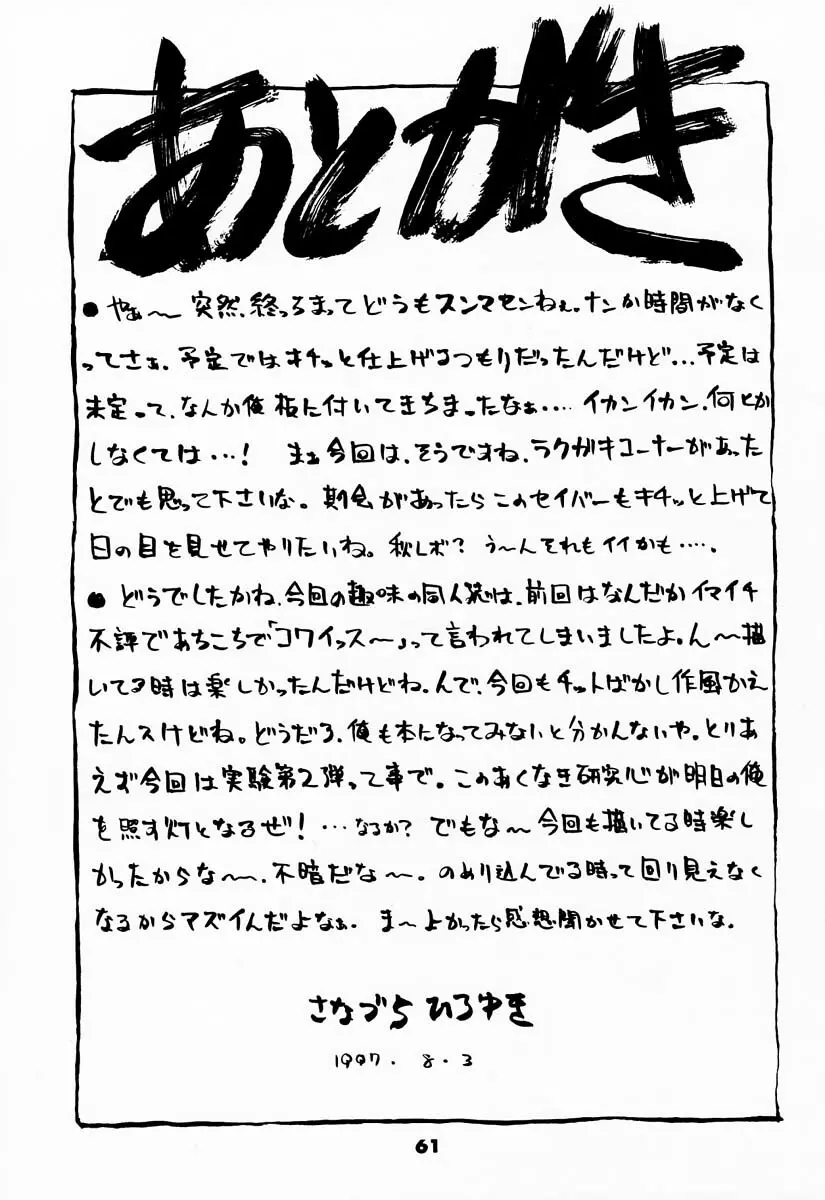 あとがき
●やぁ〜突然、終っちまってどうもスンマセンねぇ。ナンか時間がなく
ってさぁ、予定ではキチッと仕上げるつもりだったんだけど…予定は
未定って、なんか俺板に付いてきちまったなぁ‥‥イカンイカン、何とか
しなくては…！ まぁ今回は、そうですね、ラクガキコーナーがあった
とでも思って下さいな。期会があったらこのセイバーもキチッと上げて
日の目を見せてやりたいね。秋レボ？ う〜んそれもイイかも‥‥。
●どうでしたかね、今回の趣味の同人誌は、前回はなんだかイマイチ
不評であちこちで「コワイっス〜」って言われてしまいましたよ。ん〜描
いてる時は楽しかったんだけどね。んで、今回もチットばかし作風かえ
たんスけどね。どうだろ、俺も本になってみないと分かんないや。とりあ
えず今回は実験第2弾って事で。このあくなき研究心が明日の俺
を照す灯となるぜ！…なるか？ でもな〜今回も描いてる時楽し
かったからな〜、不暗だな〜。のめり込んでる時って回り見えなく
なるからマズイんだよなぁ。ま〜よかったら感想聞かせて下さいな。
さなづらひろゆき
1997. 8. 3
61